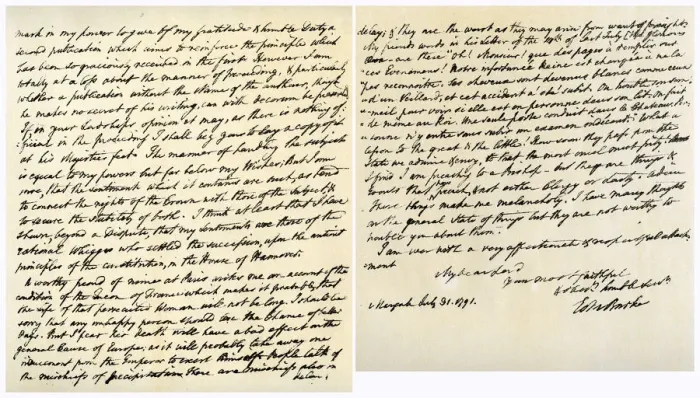 mark in my power to give of my gratitude & humble Duty a
second publication which aims to reinforce the principles which
has been so graciously received in the first. However I am
totally at a loss about the manner of presenting, & particularly
whether a publication without the Name of the authour, though
he makes no secret of his writing, can with decorum be presented
If in your Lordships opinion it may, as there is nothing of-
ficial in the proceeding I shall beg you to lay a copy of it
at his Majesties feet. The manner of handling the subject
is equal to my powers but far below my Wishes; But I am
sure, that the sentiments which it contains are such, as tend
to connect the rights of the Crown with those of the Subject, &
to secure the stability of both. I think at least that I have
shewn, beyond a Dispute, that my sentiments are those of the
rational Whiggs who settled the succession, upon the antient
principles of the constitution, in the House of Hannover.
A worthy friend of mine at Paris writes me an account of the
condition of the Queen of France which makes it probable, that
the life of that persecuted Woman will not be long. I should be
sorry that any unhappy person should lose the Chance of better
days. But I fear her death will have a bad effect on the
general Cause of Europe; as it will probably take away one
inducement from the Emperor to exert himself. People talk of
the mischiefs of precipitation. There are mischiefs also in
delay;
delay; & they are the worst as they may arise from want of foresight.
My friends words in his Letter of the of last July
are these "oh! Monsieur! que des pages à remplir sur
ces Evenemens! Notre infortunée Reine est changée a ne la
pas reconnoitre. Ses cheveux sont devenus blancs comme ceux
d'un Vieillard, et cet accident a été subit. On trouble son som-
meil pour voir si elle est en personne dans son Lit. On fait
de même au Roi. Une seule porte conduit dans le Chateau. Per-
sonne n'y entre sans subir un examen indécent." What a
lesson to the great & the little! How soon they pass from the
State we admire & envy, to that the most cruel must pity!
I find I am preaching to a Bishop. but these are things &
events that preach, & not either Clergy or laity. adieu
These things make me melancholy. I have many thoughts
on the general State of things but they are not worthy to
trouble you about them.
I am ever with a very affectionate & respectful attach-
ment
My dear Lord
Your most faithful
& obedt humble Servt
Edm Burke
Margate July 31. 1791.